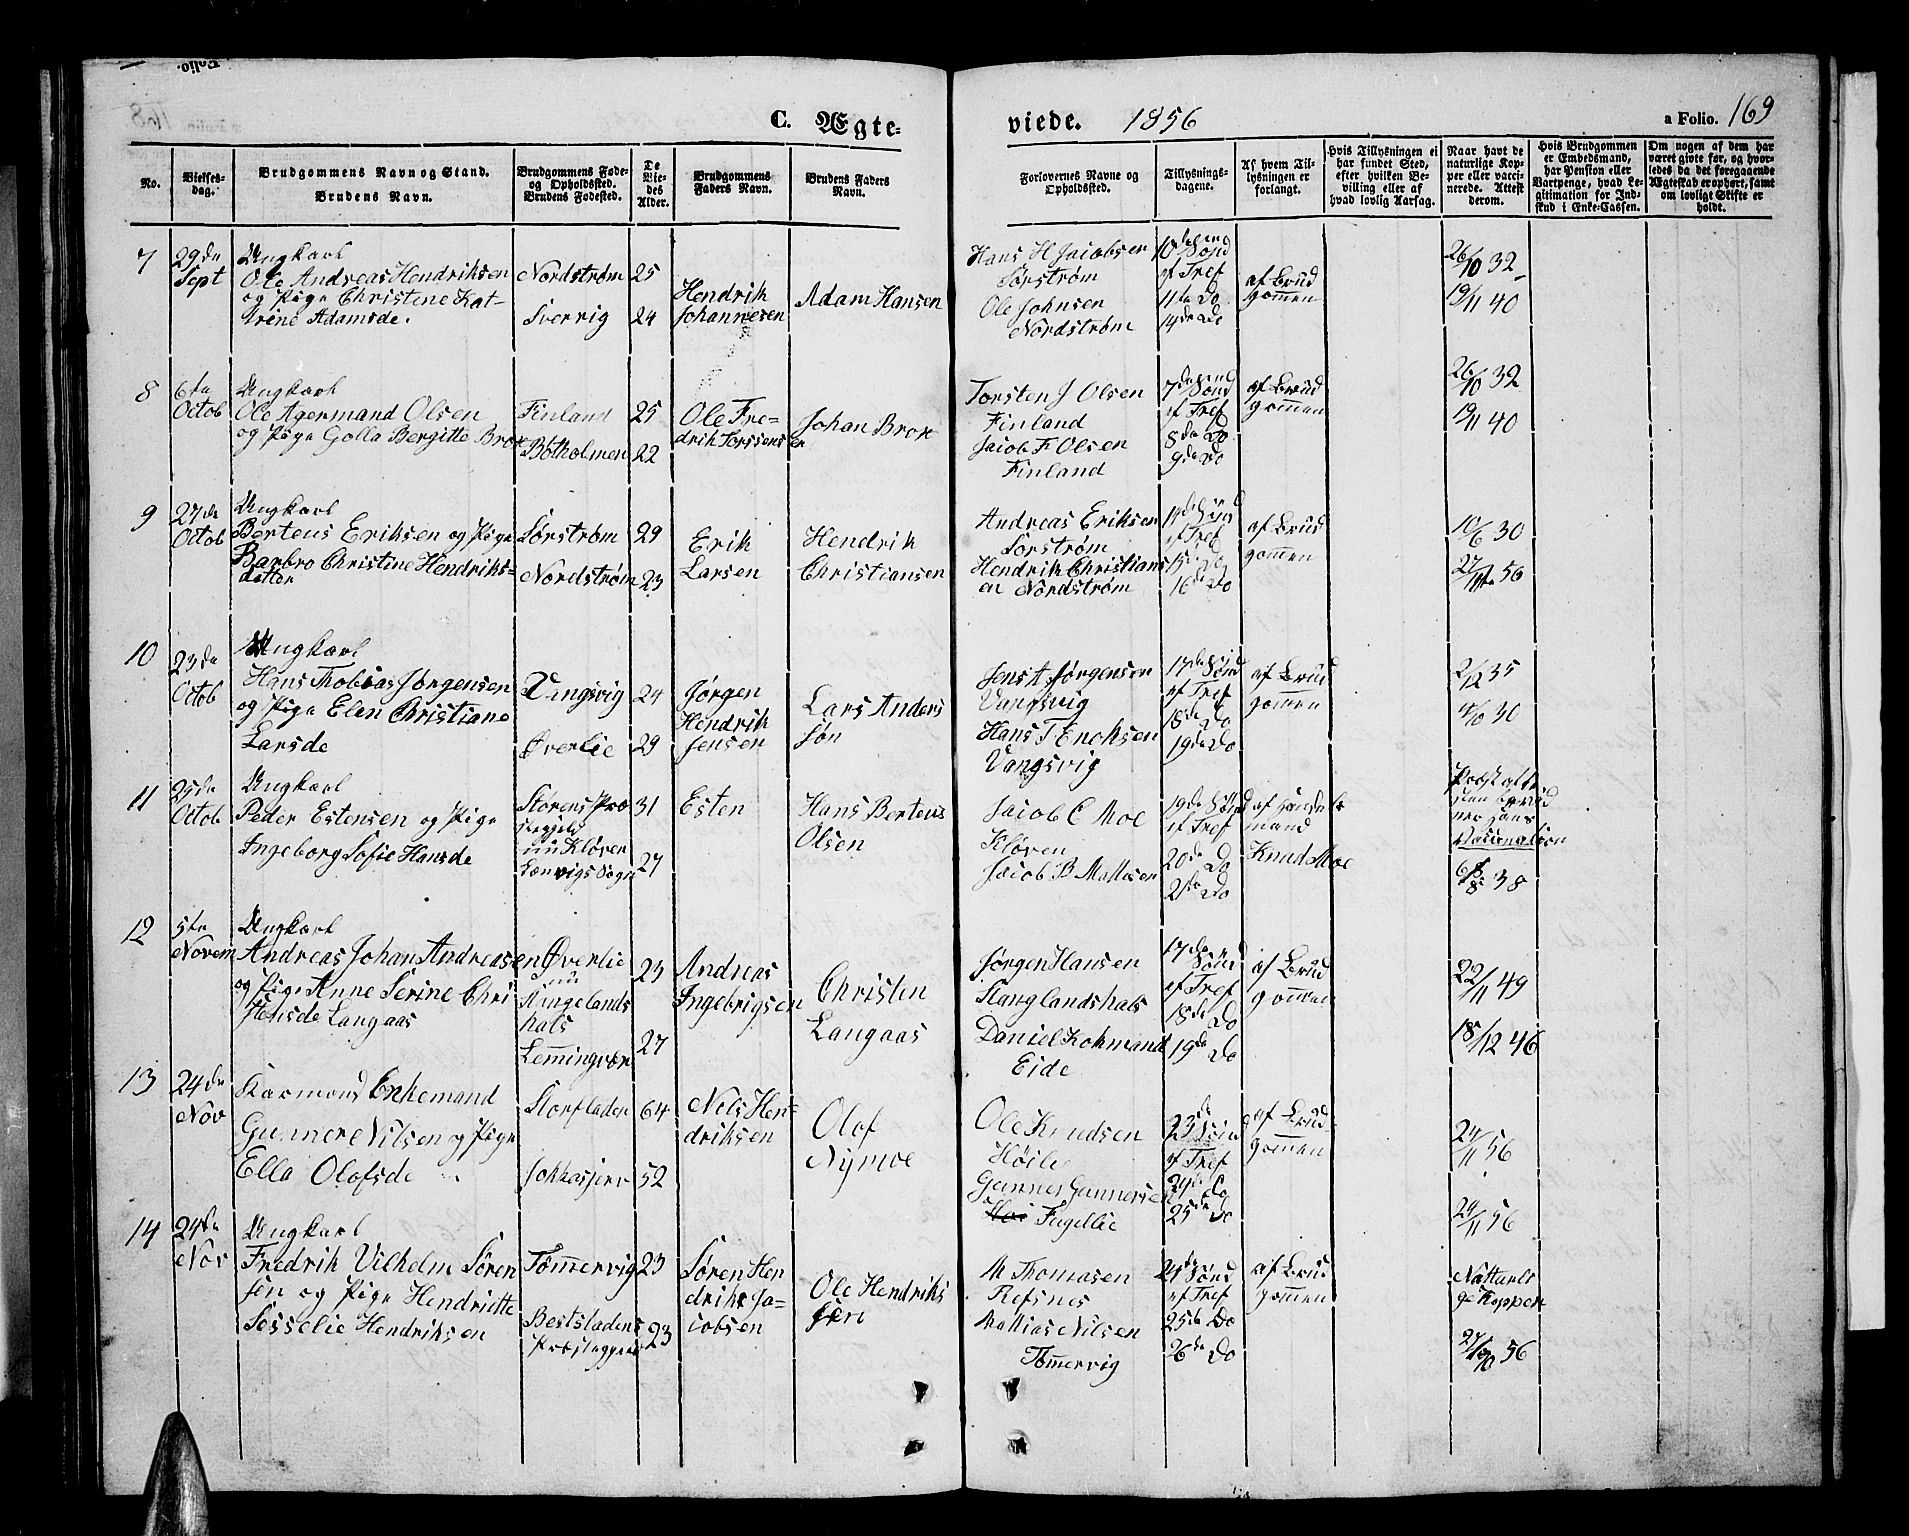 C. Ægte=
viede. 1856
a Folio. 169
No.
Vielses-
dag.
Brudgommens Navn og Stand.
Brudens Navn.
Brudgommens Føde-
og Opholdssted.
Brudens Fødested.
De
Vie-
des
Alder.
Brudgommens
Faders Navn.
Brudens Faders
Navn.
Forlovernes Navne og
Opholdssted.
Tillysnings-
dagene.
Af hvem Til-
lysningen er
forlangt.
Hvis Tillysningen ei
har fundet Sted,
efter hvilken Be-
villing eller af
hvad lovlig Aarsag.
Naar havt de
naturlige Kop-
per eller vacci-
nerede. Attest
derom.
Hvis Brudgommen
er Embedsmand,
har Pension eller
Vartpenge, hvad Le-
gitimation for Ind-
skud i Enke-Cassen.
Om nogen af dem har
været givte før, og hvor-
ledes da det foregaaende
Ægteskab er ophørt, samt
om lovligt Skifte er
holdt.
7
29de
Sept
Ungkarl
Ole Andreas Hendriksen
og Pige Christine Kat-
rine Adamsde.
Nordstrøm
Sverrig
25
24
Hendrik
Johannesen
Adam Hansen
Hans H Jacobsen
Sørstrøm
Ole Johnsen
Nordstrøm
10de Sønd
ef Tref
11te Do
14de Do
af Brud
gommen
26/10 32
19/11 40
8
6te
Octob
Ungkarl
Ole Agermand Olsen
og Pige Golla Bergitte Brox
Finland
Botholmen
25
22
Ole Fre-
drik
Johan Brox
Torsten J Olsen
Finland
Jacob F Olsen
Finland
7de Sønd
ef Tref
8de Do
9de Do
af Brud
gommen
26/10 32
19/11 40
9
27de
Octob
Ungkarl
Berteus Eriksen og Pige
Barbro Christine Hendriks-
datter
Sørstrøm
Nordstrøm
29
23
Erik
Larsen
Hendrik
Christiansen
Andreas Eriksen
Sørstrøm
Hendrik Christians
en Nordstrøm
ef Tref
15de Do
16de Do
af Brud
gommen
10/6 30
56
10
23de
Octob
Ungkarl
Hans Thobias Jørgensen
og Pige Elen Christiane
Larsde
Vangsvig
Øverlie
24
29
Jørgen
Hendrik
Jensen
Lars Anders
søn
Jens A Jørgensen
Vangsvig
Hans T Enoksen
Vangsvig
17de Sønd
ef Tref
18de Do
19de Do
af Brud
gommen
2/12 35
30
11
25de
Octob
Ungkarl
Peder Estensen og Pige
Ingeborg Sofie Hansde
Størens Præ
stegjeld
nu Kløven
Lenvigs Sogn
31
27
Esten
Hans Berteus
Olsen
Jacob C Moe
Kløven
Jacob B Matisen
19de Sønd
ef Tref
20de Do
21de Do
af Handels
mand
Knud Moe
38
12
5te
Novem
Ungkarl
Andreas Johan Andreasen
og Pige Anne Serine Chri
stensde Langaas
Øverlie
nu
hals
Lemmingvær
23
27
Andreas
Ingebrigsen
Christen
Langaas
Jørgen Hansen
Stanglandshals
Daniel Kohmand
Eide
17de Sønd
ef Tref
18de Do
19de Do
af Brud
gommen
22/11 49
18/12 46
13
24de
Nov
Enkemand
Gunner Nilsen og Pige
Ella Olofsde
64
52
Nels Hen-
driksen
Olof
Nymoe
Ole Knudsen
Gunner Gunnersen
23de Sønd
ef Tref
24de Do
25de Do
af Brud
gommen
24/11 56
24/11 56
14
24de
Nov
Ungkarl
Fredrik Vilhelm Søren
sen og Pige Hendritte
Sesselie Hendriksen
Tømmervig
23
23
Søren Hen
drik Ja-
cobsen
Ole Hendriks
sen
M Thomasen
Refsnes
Mathias Nilsen
Tømmervig
24de Sønd
ef Tref
25de Do
26de Do
af Brud
gommen
Natturli
ge Kopper
56